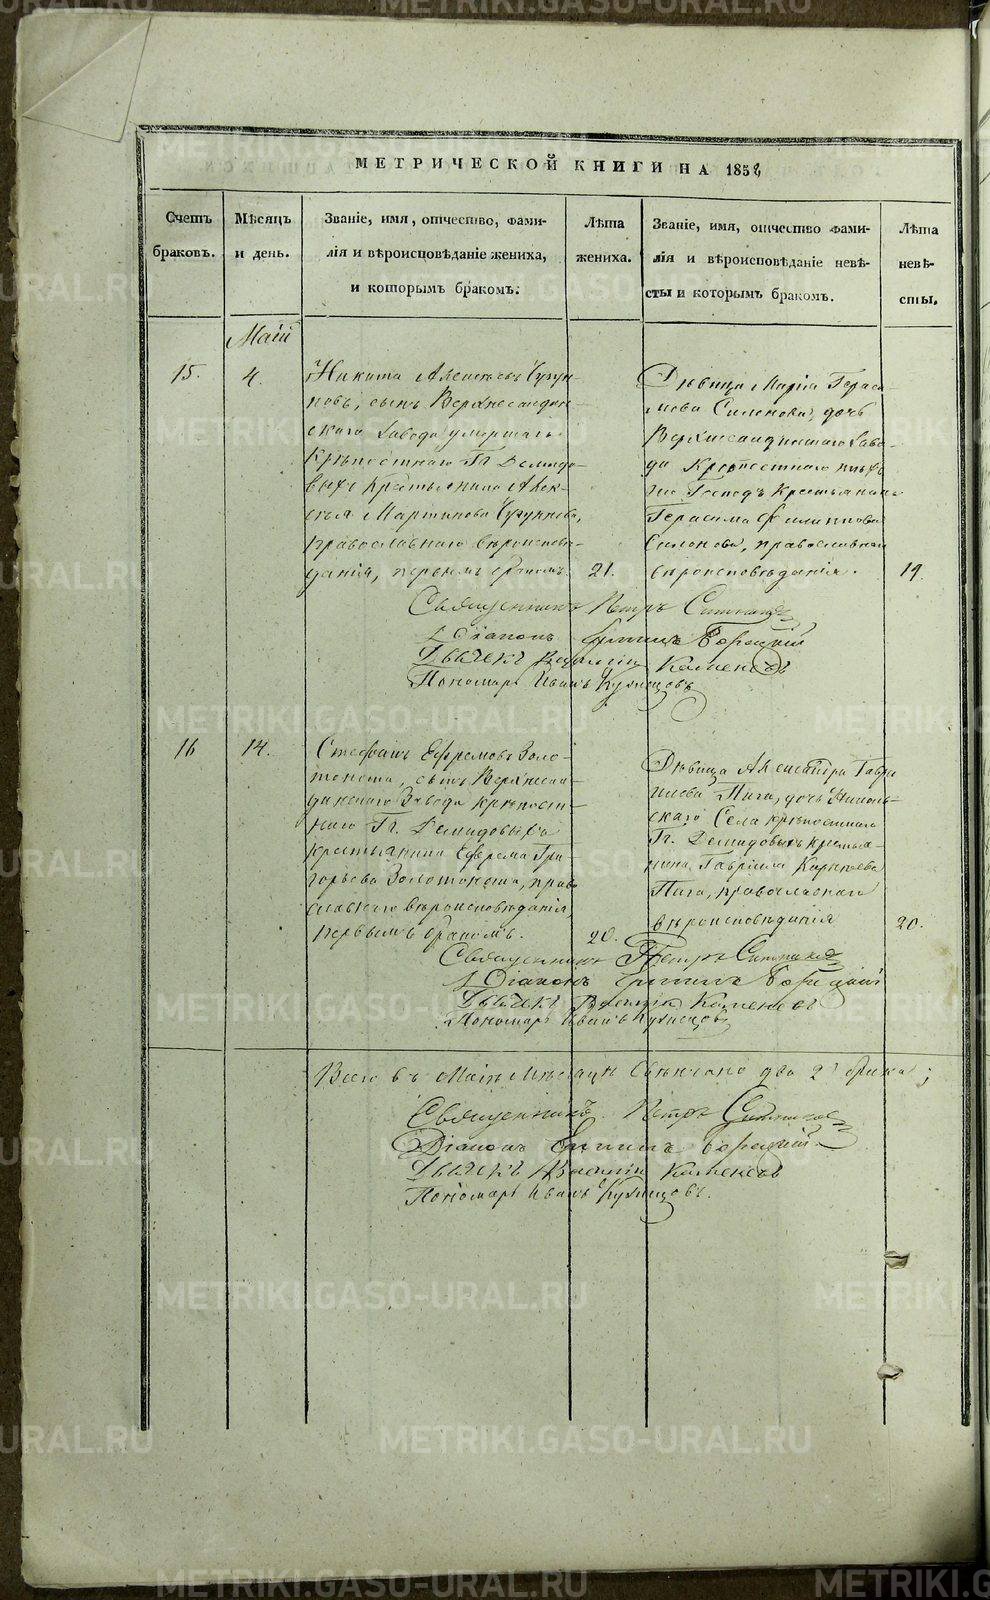 МЕТРИЧЕСКОЙ КНИГИ НА 1852
Счетъ браковъ.
Мѣсяцъ и день.
Званіе, имя, отчество, фами-
лія и вѣроисповѣданіе жениха,
и которымъ бракомъ.
Лѣта жениха.
Званіе, имя, отчество фами-
лія и вѣроисповѣданіе невѣ-
сты и которымъ бракомъ.
Лѣта
невѣ-
сты.
Маій
15.
4.
Никита Алексѣевъ Чугун-
новъ, сынъ Верхнесалдин-
скаго Завода умершаго
Крѣпостнаго Гг. Демидо-
выхъ Крестьянина Алек-
сѣя Мартинова Чугуннова,
православнаго вѣроисповѣ-
данія, первымъ бракомъ.
21.
Дѣвица Марія Гераси-
мова Силонова, дочь
Верхнесалдинскаго Заво-
да Крѣпостнаго тѣхъ
же Господъ Крестьянина
Герасима Филиппова
Силонова, православнаго
вѣроисповѣданія.
19.
Священникъ Петръ
Діаконъ
Дьячекъ Василій Каменевъ
Пономарь Иванъ Кузнецовъ
16
14.
Стефанъ Ефремовъ Золо-
, сынъ Верхнесал-
динскаго Завода крѣпост-
наго Гг. Демидовыхъ
крестьянина Ефрема Гри-
горьева , право-
славнаго вѣроисповѣданія,
первымъ бракомъ.
20.
Дѣвица Александра Гаври-
илова , дочь Николь-
скаго Села крѣпостнаго
Гг. Демидовыхъ крестья-
нина Гавріила
, православнаго
вѣроисповѣданія
20.
Священникъ Петръ
Діаконъ
Дьячекъ Василій Каменевъ
Пономарь Иванъ Кузнецовъ
Всего въ Маіѣ Мѣсяцѣ бракосочетано два 2 брака;
Священникъ Петръ
Діаконъ
Дьячекъ Василій Каменевъ
Пономарь Иванъ Кузнецовъ.
METRIKI.GASO-URAL.RU